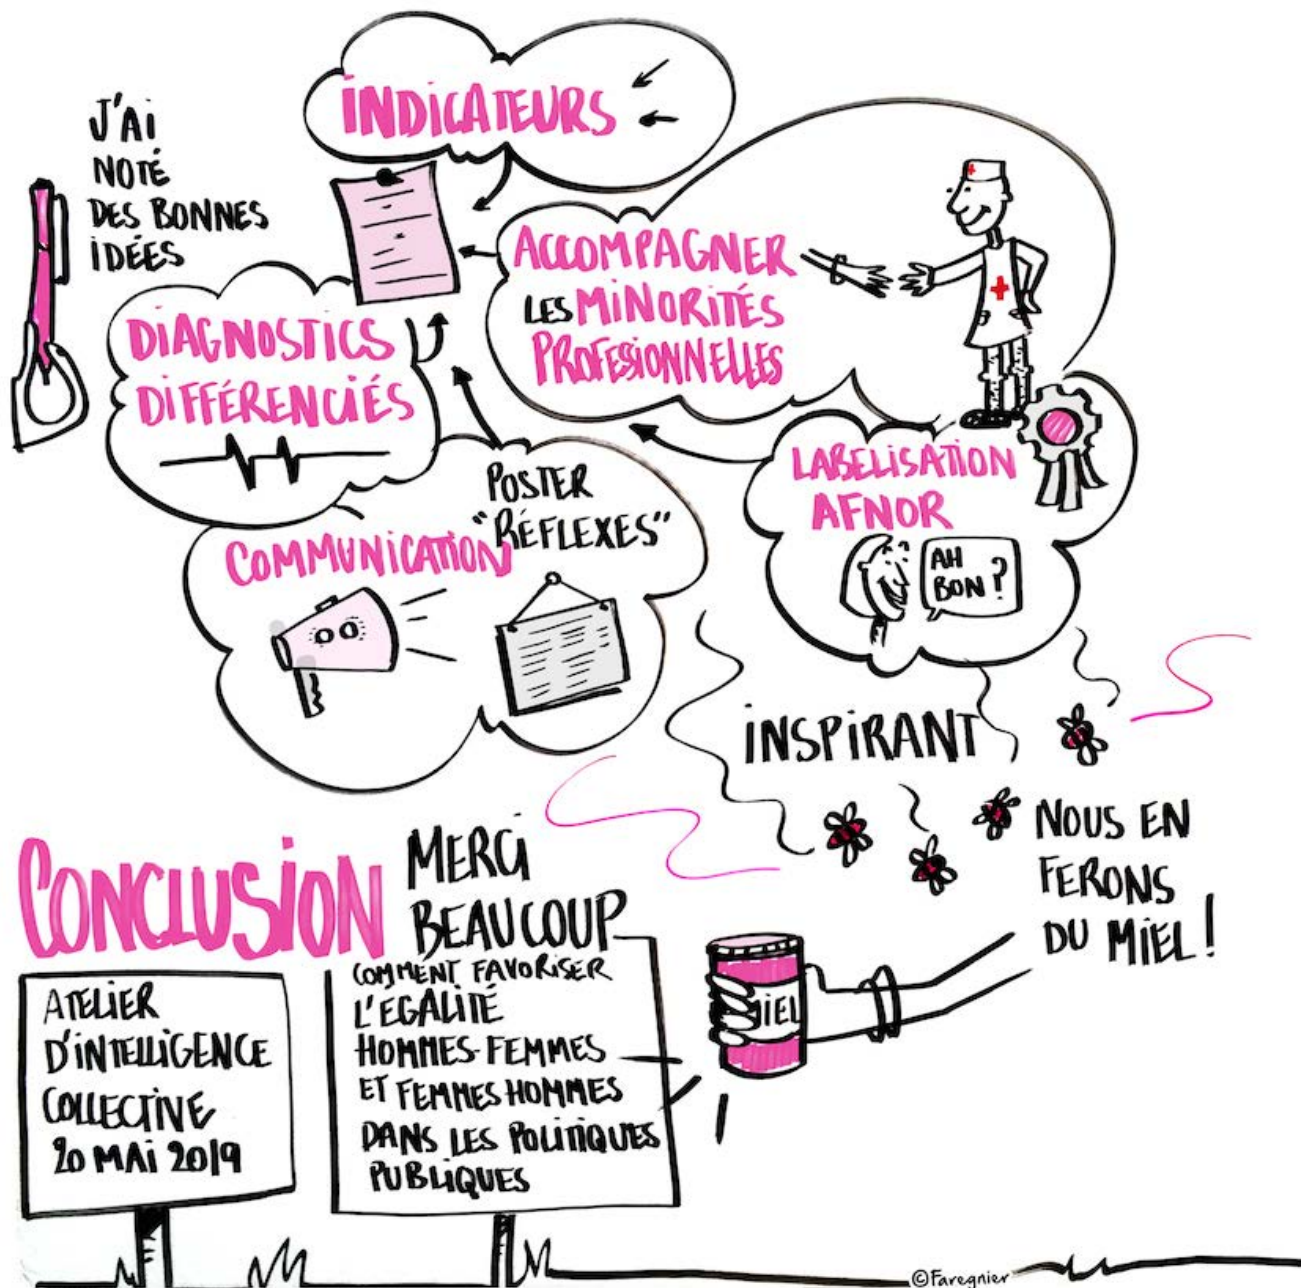 INDICATEURS
J'AI
NOTÉ
DES BONNES
IDÉES
ACCOMPAGNER
LES MINORITÉS
PROFESSIONNELLES
DIAGNOSTICS
DIFFÉRENCIÉS
LABELISATION
AFNOR
AH
BON ?
POSTER
"RÉFLEXES"
COMMUNICATION
INSPIRANT
NOUS EN
FERONS
DU MIEL !
MIEL
CONCLUSION
MERCI
BEAUCOUP
ATELIER
D'INTELLIGENCE
COLLECTIVE
20 MAI 2019
COMMENT FAVORISER
L'ÉGALITÉ
HOMMES-FEMMES
ET FEMMES HOMMES
DANS LES POLITIQUES
PUBLIQUES
©Faregnier